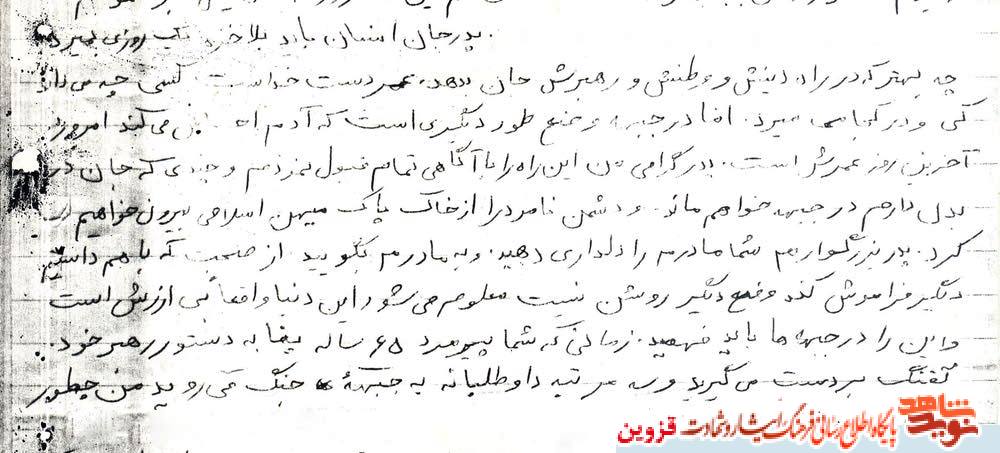 پدر جان انسان باید بلاخره یک روزی بمیرد.
چه بهتر که در راه دینش و وطنش و رهبرش جان بدهد. عمر دست خداست. کسی چه می داند
کی و در کجا می میرد. اما در جبهه وضع طور دیگری است که آدم می کند امروز
آخرین روز عمرش است. پدر گرامی من این راه را با آگاهی تمام قبول نمودم و جان در
بدن دارم در جبهه خواهم ماند. و دشمن نامرد را از خاک پاک میهن اسلامی بیرون خواهیم
کرد. پدر بزرگوارم شما مادرم را دلداری دهید. و به مادرم بگویید از صحبت که با هم داشتیم
دیگر فراموش کند وضع دیگر روشن نیست معلوم می شود این دنیا واقعا بی ارزش است
و این را در جبهه ها باید فهمید. زمانی که شما پیرمرد ۶۵ ساله بنا به دستور رهبر خود
تفنگ بر دست می گیرید و سه مرتبه داوطلبانه به جبهه جنگ می روید من چطور
نوید شاهد
پایگاه اطلاع رسانی فرهنگ ایثار و شهادت قزوین